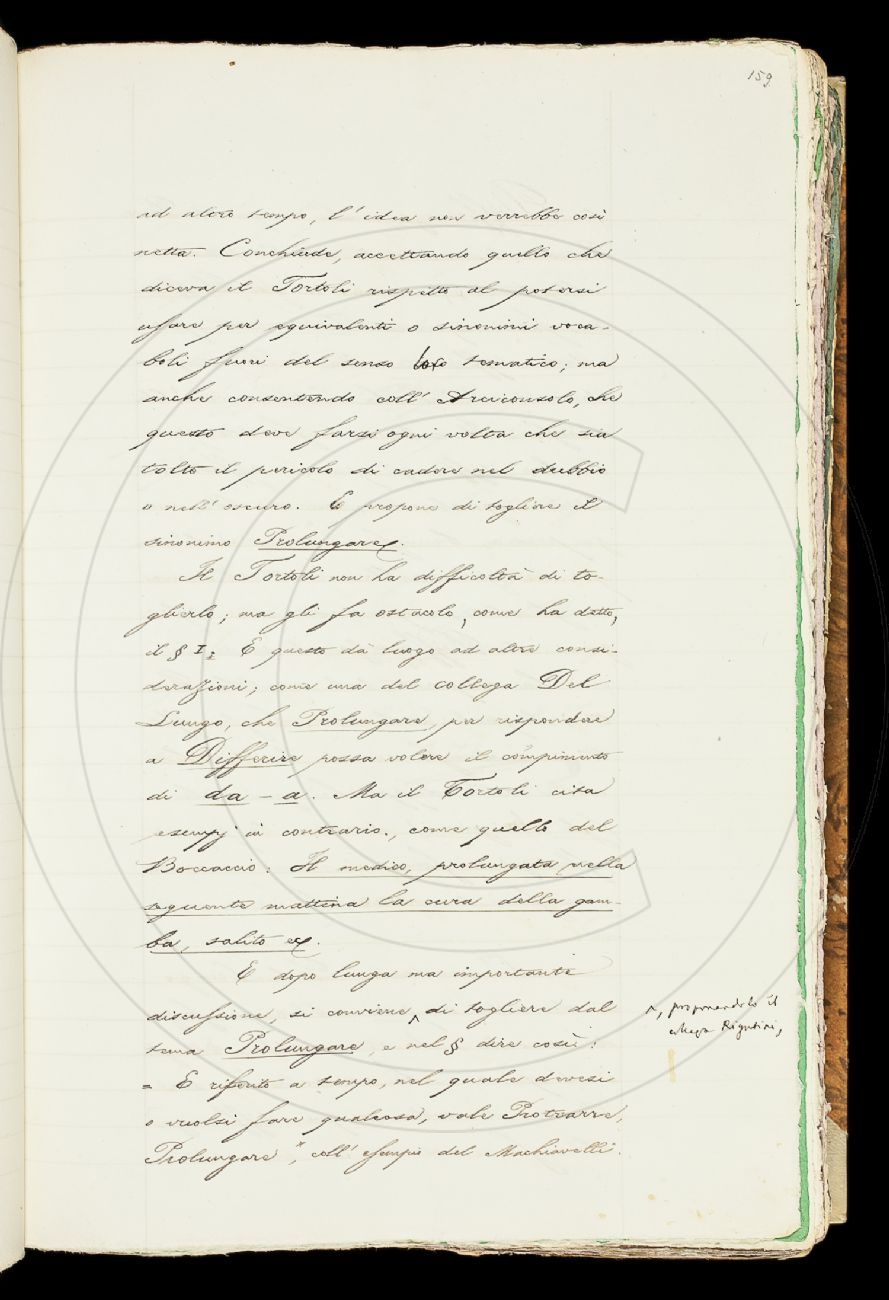 159
ad altro tempo, l'idea non verrebbe così
netta. Conchiude, accettando quello che
diceva il Tortoli rispetto al potersi
usare per equivalenti o sinonimi voca-
boli fuori del senso loro tematico; ma
anche consentendo coll' Arciconsolo, che
questo deve farsi ogni volta che sia
tolto il pericolo di cadere nel dubbio
o nell' oscuro. E propone di togliere il
sinonimo Prolungare.
Il Tortoli non ha difficoltà di to-
glierlo; ma gli fa ostacolo, come ha detto,
il § I; E questo dà luogo ad altre consi-
derazioni; come una del collega Del
Lungo, che Prolungare, per rispondere
a Differire possa volere il compimento
di da - a. Ma il Tortoli cita
esempj in contrario, come quello del
Boccaccio: Il medico, prolungata nella
seguente mattina la cura della gam-
ba, salito ec.
E dopo lunga ma importante
discussione, si conviene, di togliere dal
^, proponendolo il
collega Rigutini,
tema Prolungare, e nel § dire così:
= E riferito a tempo, nel quale devesi
o vuolsi fare qualcosa, vale Protrarre,
Prolungare", coll' esempio del Machiavelli.